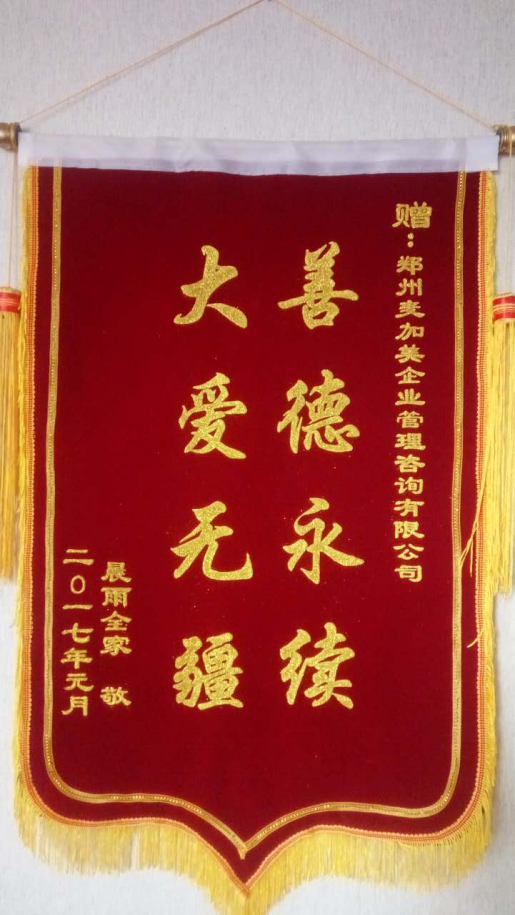 赠：郑州麦加美企业管理咨询有限公司
善德永续
大爱无疆
晨雨全家 敬
二〇一七年元月